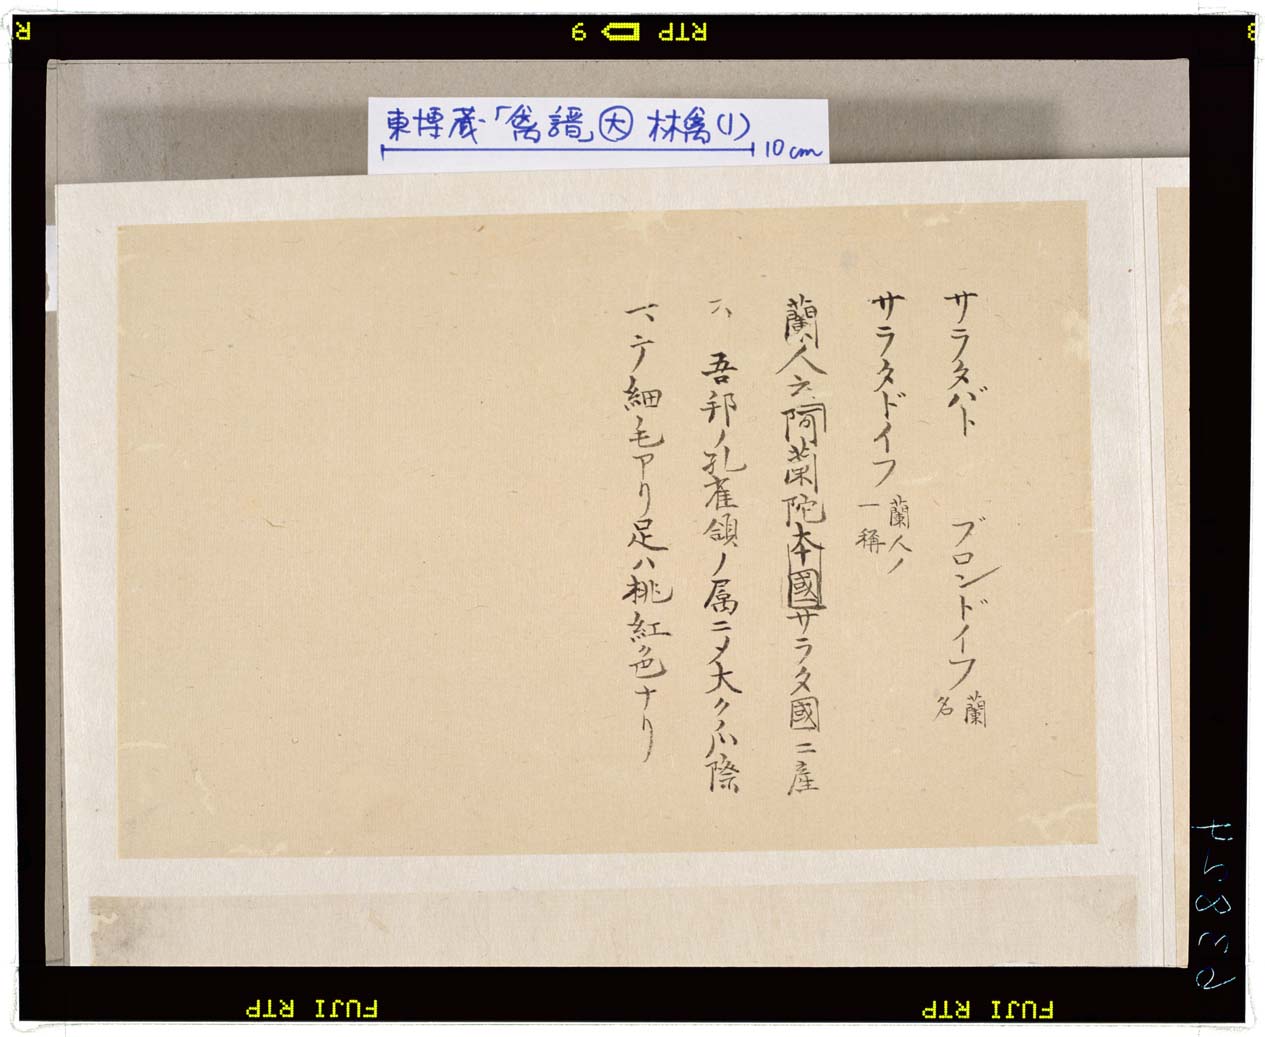 東博蔵「禽譜」大 林禽(1)
10cm
サラタバト ブロンドイフ 蘭名
サラタドイフ 蘭人ノ一称
蘭人云阿蘭陀本國サラタ國ニ産
ス 吾邦ノ孔雀領ノ属ニメ大クハ際
マテ細毛アリ足ハ桃紅色ナリ
R
RTP
9
FUJI RTP
FUJI RTP